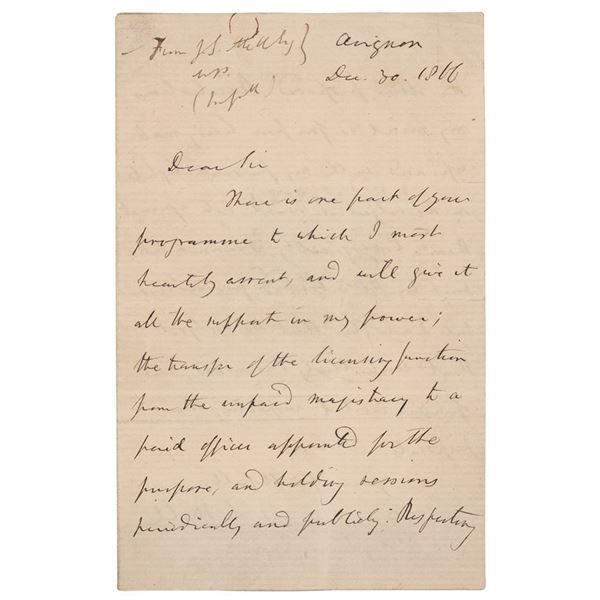 From J.S. Mill Esq
M.P.
Avignon
Dec. 30. 1866
Dear Sir
There is one part of your
programme to which I most
heartily assent, and will give it
all the support in my power;
the transfer of the licensing function
from the unpaid magistracy to a
paid officer appointed for the
purpose, and holding sessions
periodically and publicly. Respecting